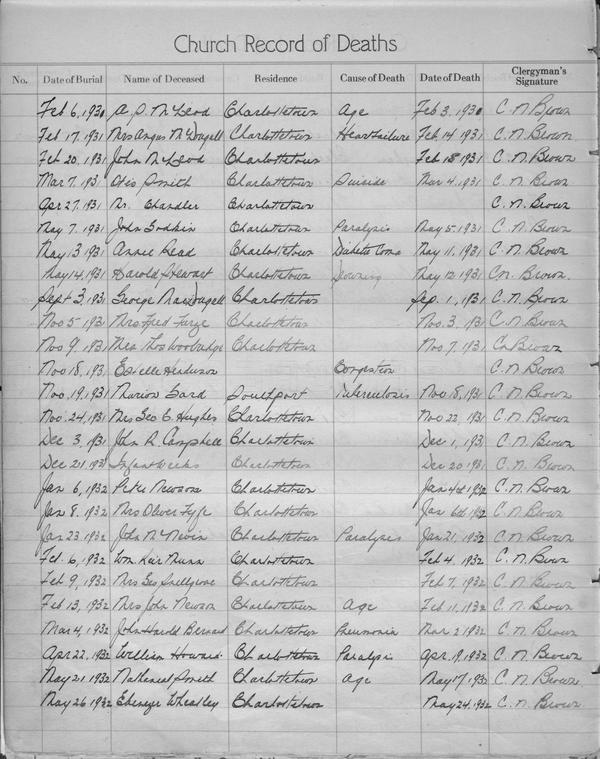 Church Record of Deaths
No. Date of Burial Name of Deceased Residence Cause of Death Date of Death Clergyman's Signature
Feb 6, 1931 A. D. McLeod Charlottetown Age Feb 3, 1931 C. N. Brown
Feb 17, 1931 Mrs Angus McDugell Charlottetown Heart failure Feb 14 1931 C. N. Brown
Feb 20, 1931 John McLeod Charlottetown Feb 18 1931 C. N. Brown
Mar 7, 1931 Otis Smith Charlottetown Suicide Mar 4, 1931 C. N. Brown
Apr 27, 1931 Mr. Chandler Charlottetown C. N. Brown
May 7, 1931 John Godkin Charlottetown Paralysis May 5, 1931 C. N. Brown
May 13 1931 Annie Read Charlottetown Diabetic Coma May 11, 1931 C. N. Brown
May 14, 1931 Harold Stewart Charlottetown May 12 1931 C. N. Brown.
Sept 3, 1931 George MacDugell Charlottetown Sep. 1, 1931 C. N. Brown
Nov 5 1931 Mrs Fred Charlottetown Nov. 3, 1931 C. N. Brown
Nov 9, 1931 Mrs Thos Woolbridge Charlottetown Nov 7, 1931 C. N. Brown
Nov 18, 1931 Estelle Henderson Congestion C. N. Brown
Nov. 19, 1931 Marion Gard Southport Tuberculosis Nov 18, 1931 C. N. Brown
Nov. 24, 1931 Mrs Geo C. Hughes Charlottetown Nov 22, 1931 C. N. Brown
Dec 3, 1931 John R. Campbell Charlottetown Dec 1, 1931 C. N. Brown
Dec 21, 1931 Infant Weeks Charlottetown Dec 20 1931 C. N. Brown
Jan 6, 1932 Peter Newsom Charlottetown Jan 4th 1932 C. N. Brown
Jan 8, 1932 Mrs Oliver Fyfe Charlottetown Jan 6th 1932 C. N. Brown
Jan 23, 1932 John McNevin Charlottetown Paralysis Jan 21, 1932 C. N. Brown
Feb. 6, 1932 Wm. Keir Munn Charlottetown Feb 4, 1932 C. N. Brown
Feb 9, 1932 Mrs Geo Snellgrove Charlottetown Feb 7, 1932 C. N. Brown
Feb 13, 1932 Mrs John Newson Charlottetown Age Feb 11, 1932 C. N. Brown
Mar 4, 1932 John Harold Bernard Charlottetown Pneumonia Mar 2 1932 C. N. Brown
Apr 22, 1932 William Howard Charlottetown Paralysis Apr. 19, 1932 C. N. Brown
May 21 1932 Nathaneal Smith Charlottetown Age May 17, 1932 C. N. Brown
May 26, 1932 Ebenezer Wheatley Charlottetown May 24, 1932 C. N. Brown